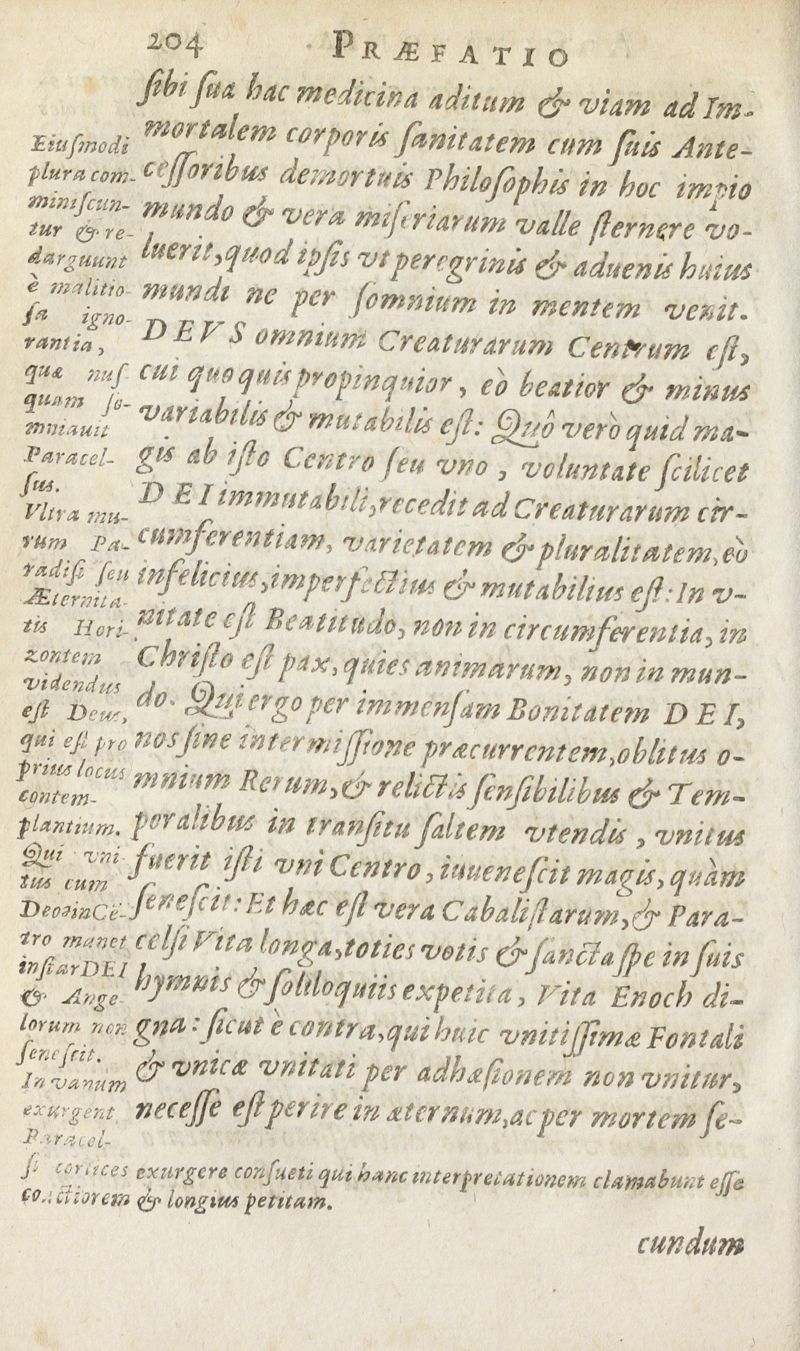 204 PRÆFATIO
ſibi ſua hac medicina aditum & viam ad Im-
mortalem corporis ſanitatem cum ſuis Ante-
ceſſoribus demortuis Philoſophis in hoc impio
mundo & vera miſeriarum valle ſternere vo-
luerit, quod ipſis vt peregrinis & aduenis huius
mundi ne per ſomnium in mentem venit.
DEVS omnium Creaturarum Centrum eſt,
cui quo quis propinquior, eò beatior & minus
variabilis & mutabilis eſt: Quô verò quid ma-
gis ab iſto Centro ſeu vno, voluntate ſcilicet
DEI immutabili, recedit ad Creaturarum cir-
cumferentiam, varietatem & pluralitatem, eò
infelicius, imperfectius & mutabilius eſt: In v-
nitate eſt Beatitudo, non in circumferentia, in
Chriſto eſt pax, quies animarum, non in mun-
do. Qui ergo per immenſam Bonitatem DEI,
nos ſine intermiſſione præcurrentem, oblitus o-
mnium Rerum, & relictis ſenſibilibus & Tem-
poralibus in tranſitu ſaltem vtendis, vnitus
fuerit iſti vni Centro, iuueneſcit magis, quàm
ſeneſcit: Et hæc eſt vera Cabaliſtarum, & Para-
celſi Vita longa, toties votis & ſancta ſpe in ſuis
hymnis & ſoliloquiis expetita, Vita Enoch di-
gna: ſicut è contra, qui huic vnitiſſimæ Fontali
& vnicæ vnitati per adhæſionem non vnitur,
neceſſe eſt perire in æternum, ac per mortem ſe-
Eiuſmodi
plura com-
miniſcun-
tur & re-
darguunt
è malitio-
ſa igno-
rantia,
quæ nuſ-
quam ſo-
mniauit
Paracel-
ſus.
Vltra mu-
rum Pa-
radiſi ſeu
Æternita-
tis Hori-
zontem
videndus
eſt Deus,
qui eſt pro
prius locus
contem-
plantium.
Qui vni-
tus cum
Deo in Cē-
tro manet
inſtar DEI
& Ange-
lorum non
ſeneſcit.
In vanum
exurgent
Paracel-
ſi cortices exurgere conſueti qui hanc interpretationem clamabunt eſſe
coactiorem & longius petitam.
cundum